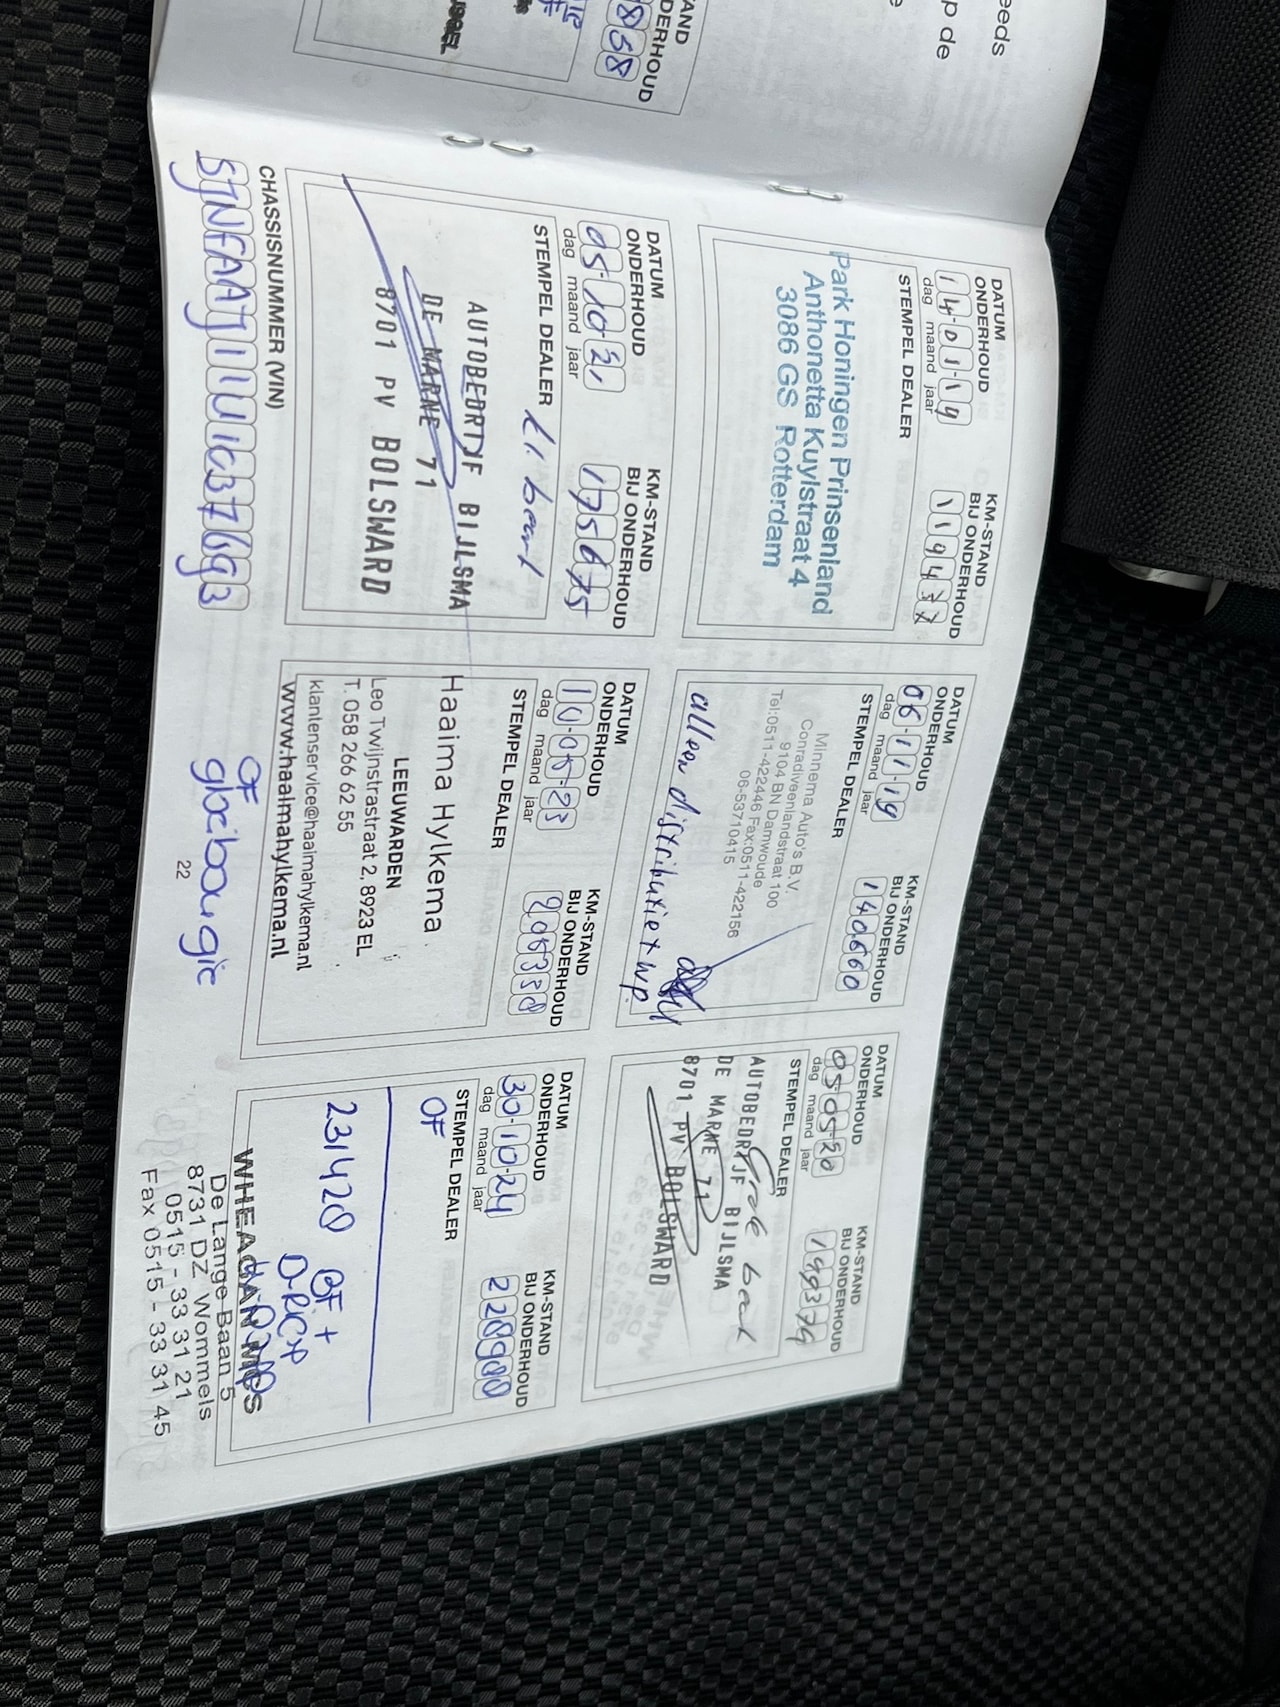 eeds
p de
e
STAND
DERHOUD
858
DATUM
ONDERHOUD
14-01-19
dag maand jaar
KM-STAND
BIJ ONDERHOUD
STEMPEL DEALER
Park Honingen Prinsenland
Anthonetta Kuylstraat 4
3086 GS Rotterdam
DATUM
ONDERHOUD
06-11-19
dag maand jaar
KM-STAND
BIJ ONDERHOUD
140660
STEMPEL DEALER
Minnema Auto's B.V.
Conradiveenlandstraat 100
9104 BN Damwoude
Tel:0511-422446 Fax:0511-422156
06-53710415
alleen distributie + wp.
DATUM
ONDERHOUD
050520
dag maand jaar
KM-STAND
BIJ ONDERHOUD
149374
STEMPEL DEALER
AUTOBEDRIJF BIJLSMA
DE MARNE 71
8701 PV BOLSWARD
DATUM
ONDERHOUD
05-10-21
dag maand jaar
KM-STAND
BIJ ONDERHOUD
175675
STEMPEL DEALER
AUTOBEDRIJF BIJLSMA
DE MARNE 71
8701 PV BOLSWARD
DATUM
ONDERHOUD
10-05-23
dag maand jaar
KM-STAND
BIJ ONDERHOUD
STEMPEL DEALER
Haaima Hylkema
LEEUWARDEN
Leo Twijnstrastraat 2, 8923 EL
T. 058 266 62 55
klantenservice@haaimahylkema.nl
www.haaimahylkema.nl
DATUM
ONDERHOUD
30-10-24
dag maand jaar
KM-STAND
BIJ ONDERHOUD
220900
STEMPEL DEALER
OF
231420 OF +
WHEAGAN MCS
De Lange Baan 5
8731 DZ Wommels
0515 - 33 31 21
Fax 0515 - 33 31 45
CHASSISNUMMER (VIN)
SJNFAAJ11U1037693
OF
22